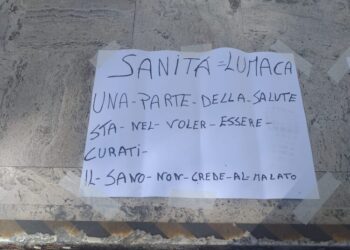 SANITÁ = LUMACA
UNA - PARTE - DELLA - SALUTE
STA - NEL - VOLER - ESSERE -
CURATI -
IL - SANO - NON - CREDE - AL - MALATO